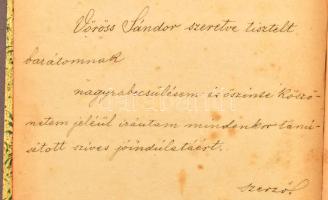 Vörös Sándor szeretve tisztelt
barátomnak
nagyrabecsülésem és őszinte köszö-
netem jeléül irántam mindenkor tanu-
sitott szives jóindulatáért.
szerző.